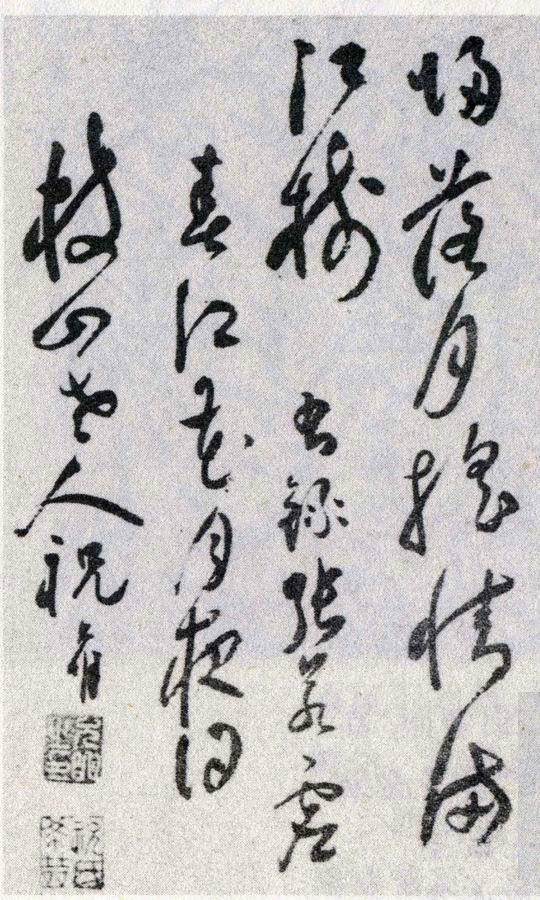 歸落月搖情滿
江樹 右錄張若虛
春江花月夜
枝山老人祝允明